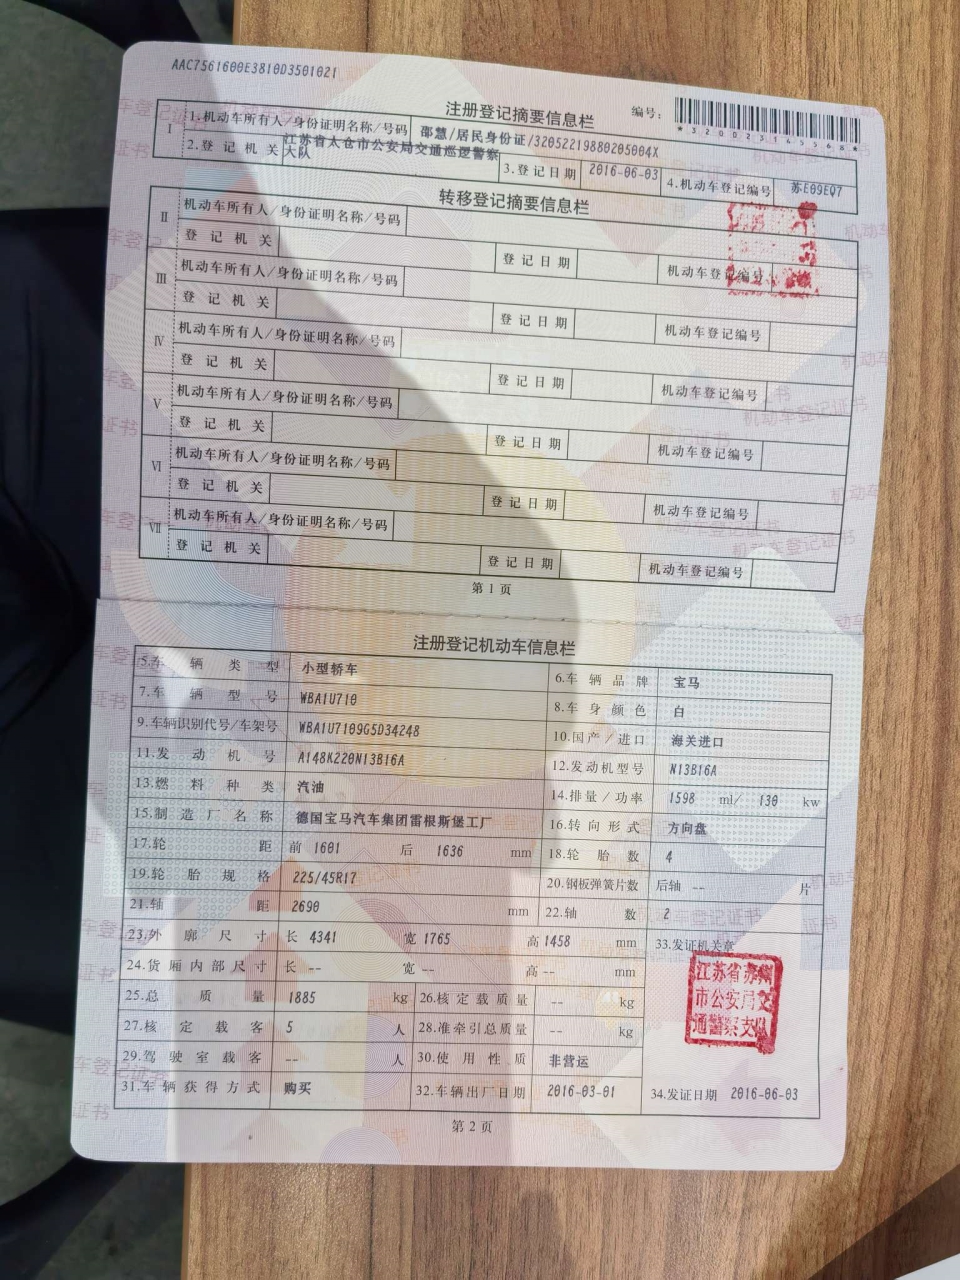 AAC7561600E3810D3501021
注册登记摘要信息栏
编号：
*320023145568*
I 1.机动车所有人/身份证明名称/号码 邵慧/居民身份证/32052219880205004X
2.登记机关 江苏省太仓市公安局交通巡逻警察大队 3.登记日期 2016-06-03 4.机动车登记编号 苏E09EQ7
转移登记摘要信息栏
II 机动车所有人/身份证明名称/号码
登记机关 登记日期 机动车登记编号
III 机动车所有人/身份证明名称/号码
登记机关 登记日期 机动车登记编号
IV 机动车所有人/身份证明名称/号码
登记机关 登记日期 机动车登记编号
V 机动车所有人/身份证明名称/号码
登记机关 登记日期 机动车登记编号
VI 机动车所有人/身份证明名称/号码
登记机关 登记日期 机动车登记编号
VII 机动车所有人/身份证明名称/号码
登记机关 登记日期 机动车登记编号
第1页
注册登记机动车信息栏
5.车辆类型 小型轿车 6.车辆品牌 宝马
7.车辆型号 WBA1U710 8.车身颜色 白
9.车辆识别代号/车架号 WBA1U7109G5D34248 10.国产/进口 海关进口
11.发动机号 A148K220N13B16A 12.发动机型号 N13B16A
13.燃料种类 汽油 14.排量/功率 1598 ml/ 130 kw
15.制造厂名称 德国宝马汽车集团雷根斯堡工厂 16.转向形式 方向盘
17.轮距 前 1601 后 1636 mm 18.轮胎数 4
19.轮胎规格 225/45R17 20.钢板弹簧片数 后轴 -- 片
21.轴距 2690 mm 22.轴数 2
23.外廓尺寸 长 4341 宽 1765 高 1458 mm 33.发证机关章
24.货厢内部尺寸 长 -- 宽 -- 高 -- mm
25.总质量 1885 kg 26.核定载质量 -- kg
27.核定载客 5 人 28.准牵引总质量 -- kg
29.驾驶室载客 -- 人 30.使用性质 非营运
31.车辆获得方式 购买 32.车辆出厂日期 2016-03-01 34.发证日期 2016-06-03
江苏省苏州
市公安局交
通警察支队
第2页